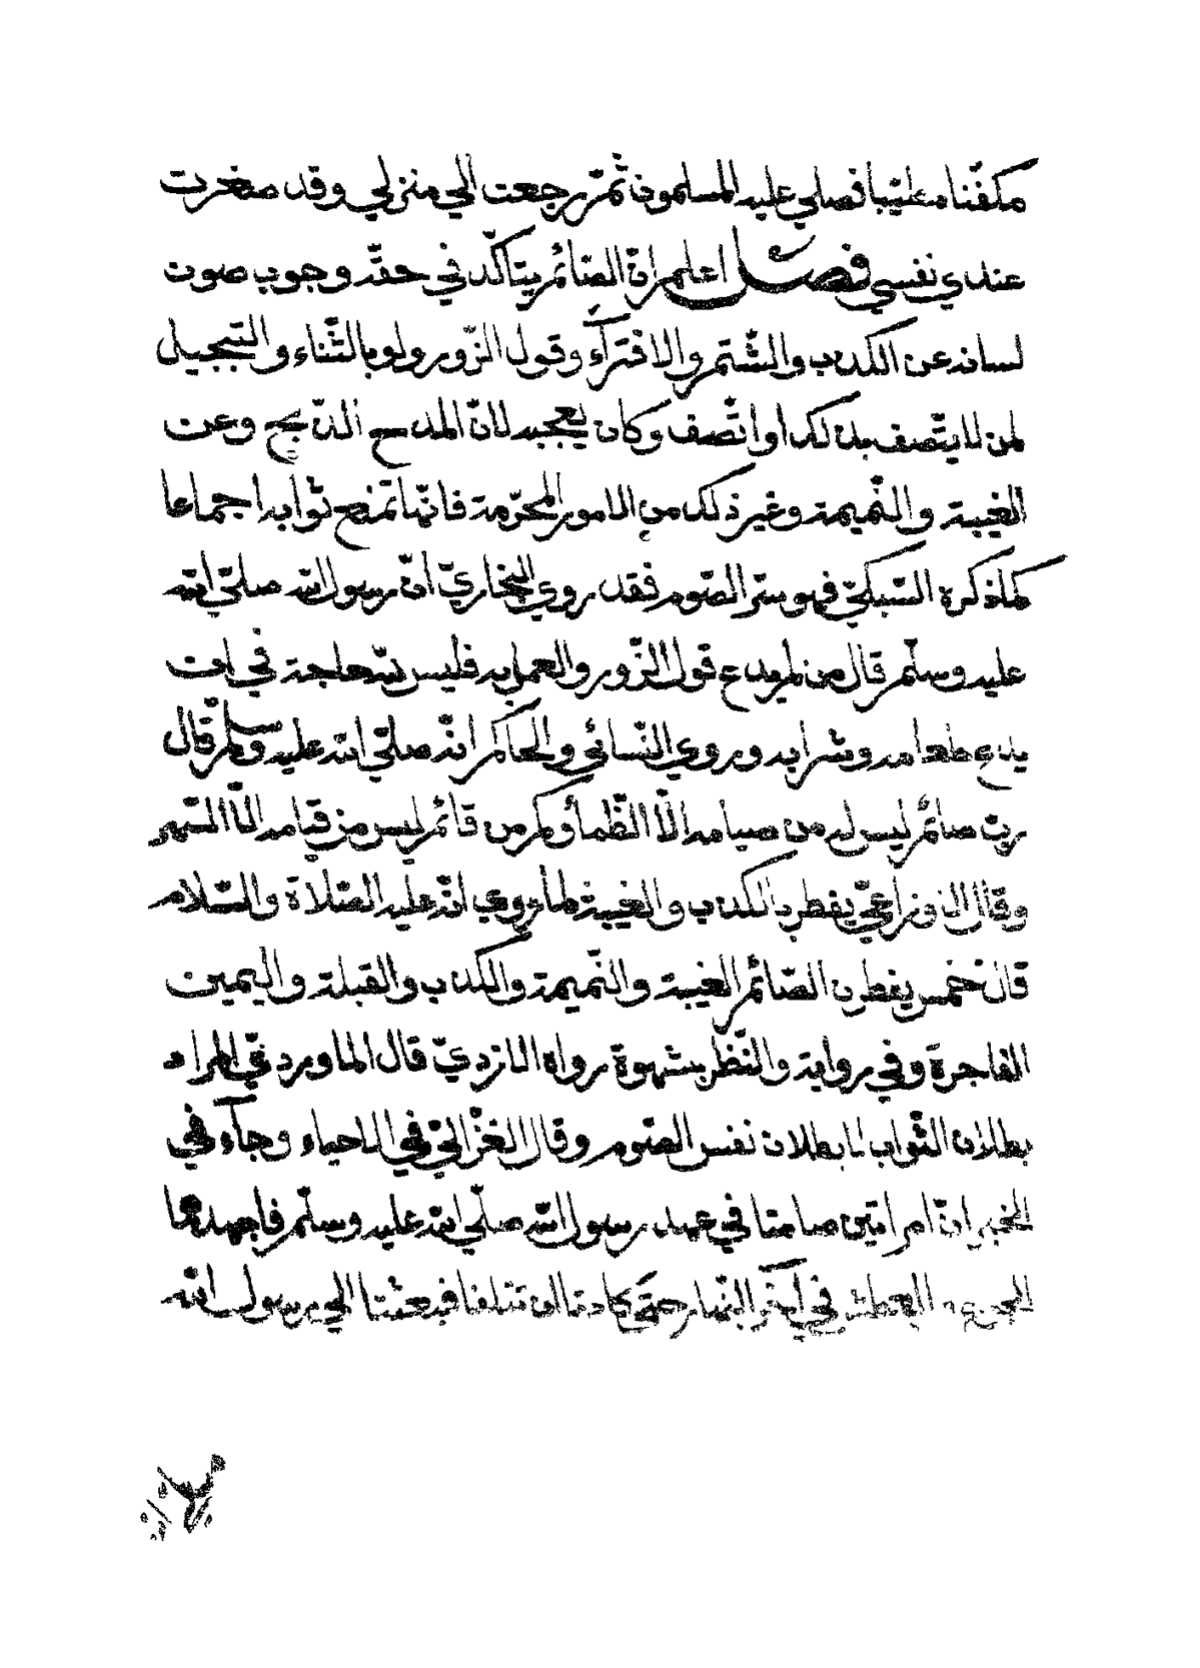 مكفّنا مطيّبا فصلي عليه المسلمون ثمّ رجعت الي منزلي وقد صغرت
عندي نفسي فصل اعلم انّ الصّائم يتاكّد في حقّه وجوب صون
لسانه عن الكذب والشّتم والافترآء وقول الزّور ولو بالثّناء والتبجيل
لمن لا يتّصف بذلك او اتّصف وكان يعجبه لانّ المدح الذّبح وعن
الغيبة والنّميمة وغير ذلك من الامور المحرّمة فانّها تمنع ثوابه اجماعا
كما ذكره السّبكيّ فهو سرّ الصّوم فقد روي البخاريّ انّ رسول الله صلّي الله
عليه وسلّم قال من لم يدع قول الزّور والعمل به فليس لله حاجة في ان
يدع طعامه وشرابه وروي النّسائي والحاكم انّه صلّي الله عليه وسلّم قال
ربّ صائم ليس له من صيامه الّا الظّمأ وكم من قائم ليس من قيامه الّا السّهر
وقال الاوزاعيّ يفطر بالكذب والغيبة لما روي انّه عليه الصّلاة والسّلام
قال خمس يفطرن الصّائم الغيبة والنّميمة والكذب والقبلة واليمين
الفاجرة وفي رواية والنّظر بشهوة رواه الازديّ قال الماوردّي المراد
بطلان الثّواب لا بطلان نفس الصّوم وقال الغزاليّ في الاحياء وجآء في
الخبر انّ امراتين صامتا في عهد رسول الله صلّي الله عليه وسلّم فاجهدهما
الجوع والعطش في آخر النّهار حتّي كادتا ان تتلفا فبعثتا الي رسول الله